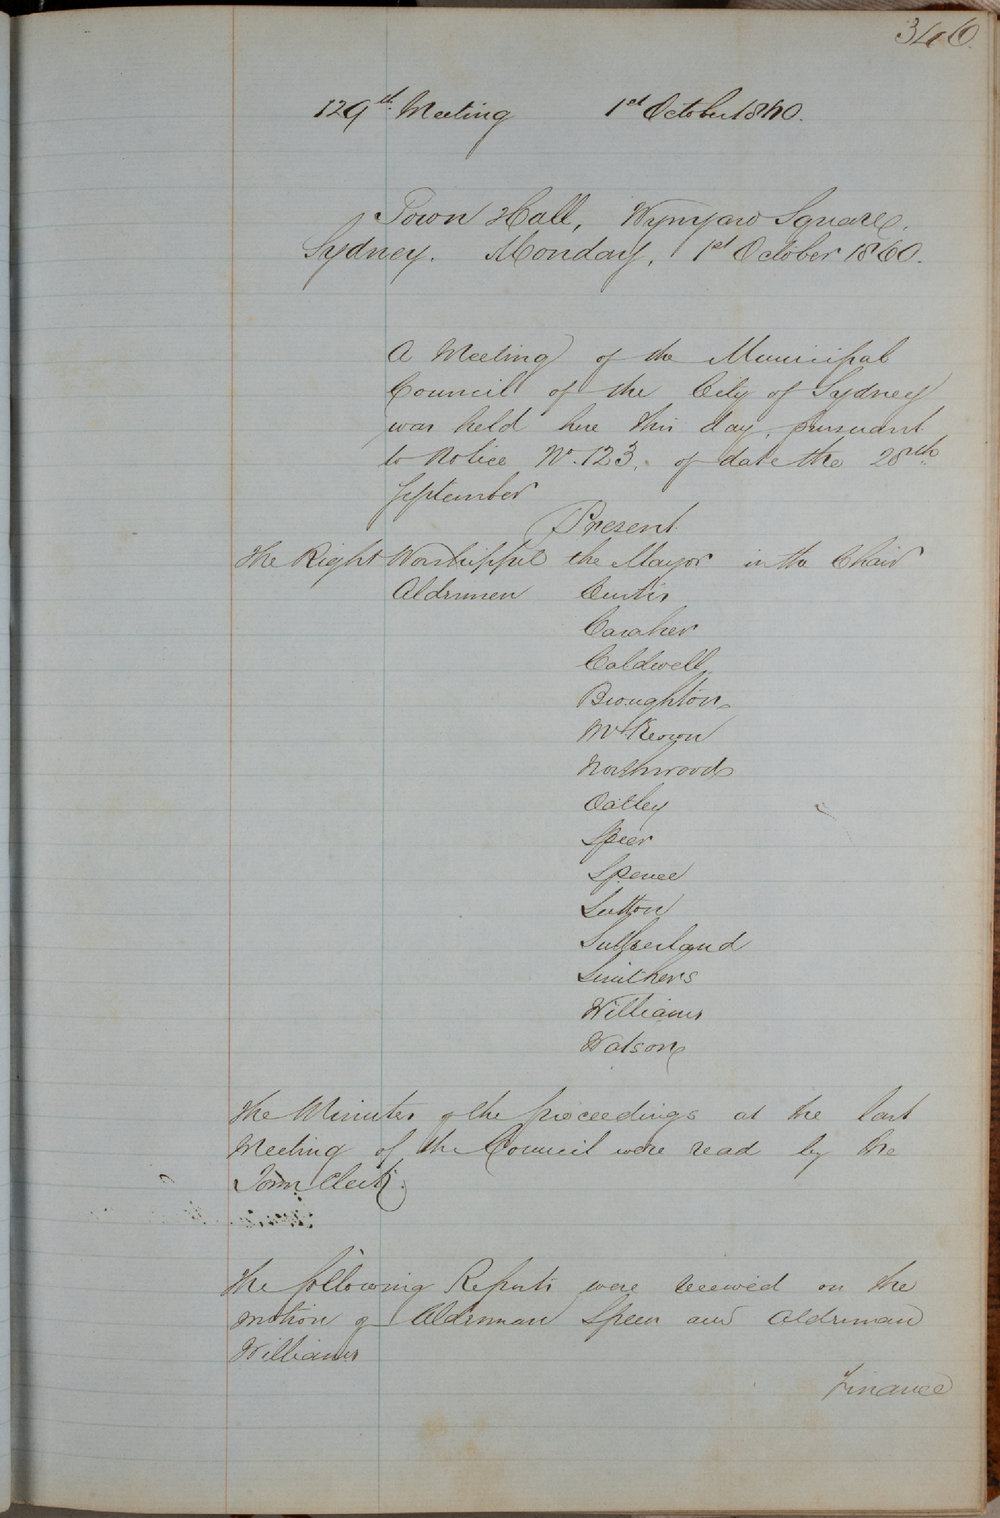 346.
129th Meeting 1st October 1860.
Town Hall, Wynyard Square,
Sydney. Monday, 1st October 1860.
A Meeting of the Municipal
Council of the City of Sydney
was held here this day, pursuant
to Notice No. 123, of date the 28th
September
Present
The Right Worshipful the Mayor in the Chair
Aldermen Curtis
Caraher
Caldwell
Broughton
McKeown
Northwood
Oatley
Speer
Spence
Sutton
Sutherland
Smithers
Williams
Watson
The Minutes of the proceedings at the last
Meeting of the Council were read by the
Town Clerk.
The following Reports were received on the
motion of Alderman Speer and Alderman
Williams
Finance